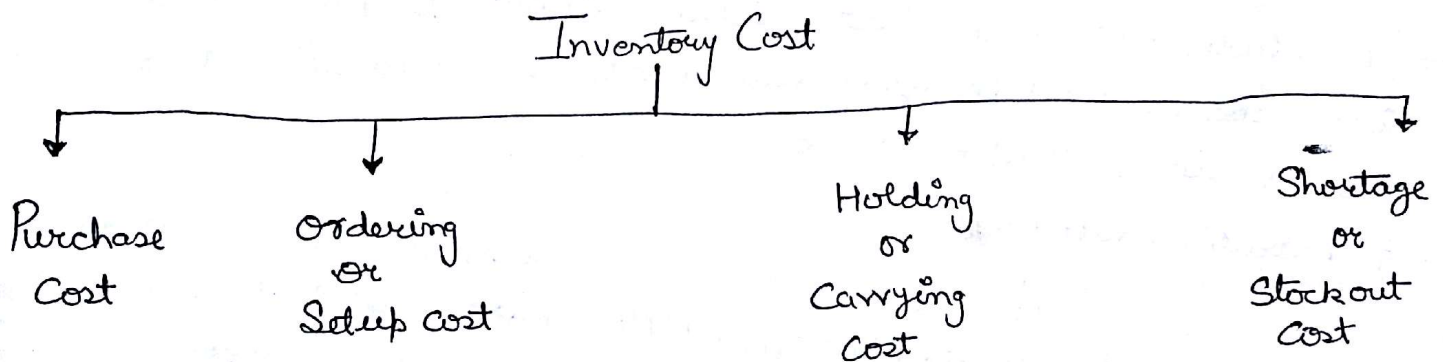 Inventory Cost
Purchase
Cost
Ordering
or
Setup cost
Holding
or
Carrying
Cost
Shortage
or
Stockout
Cost